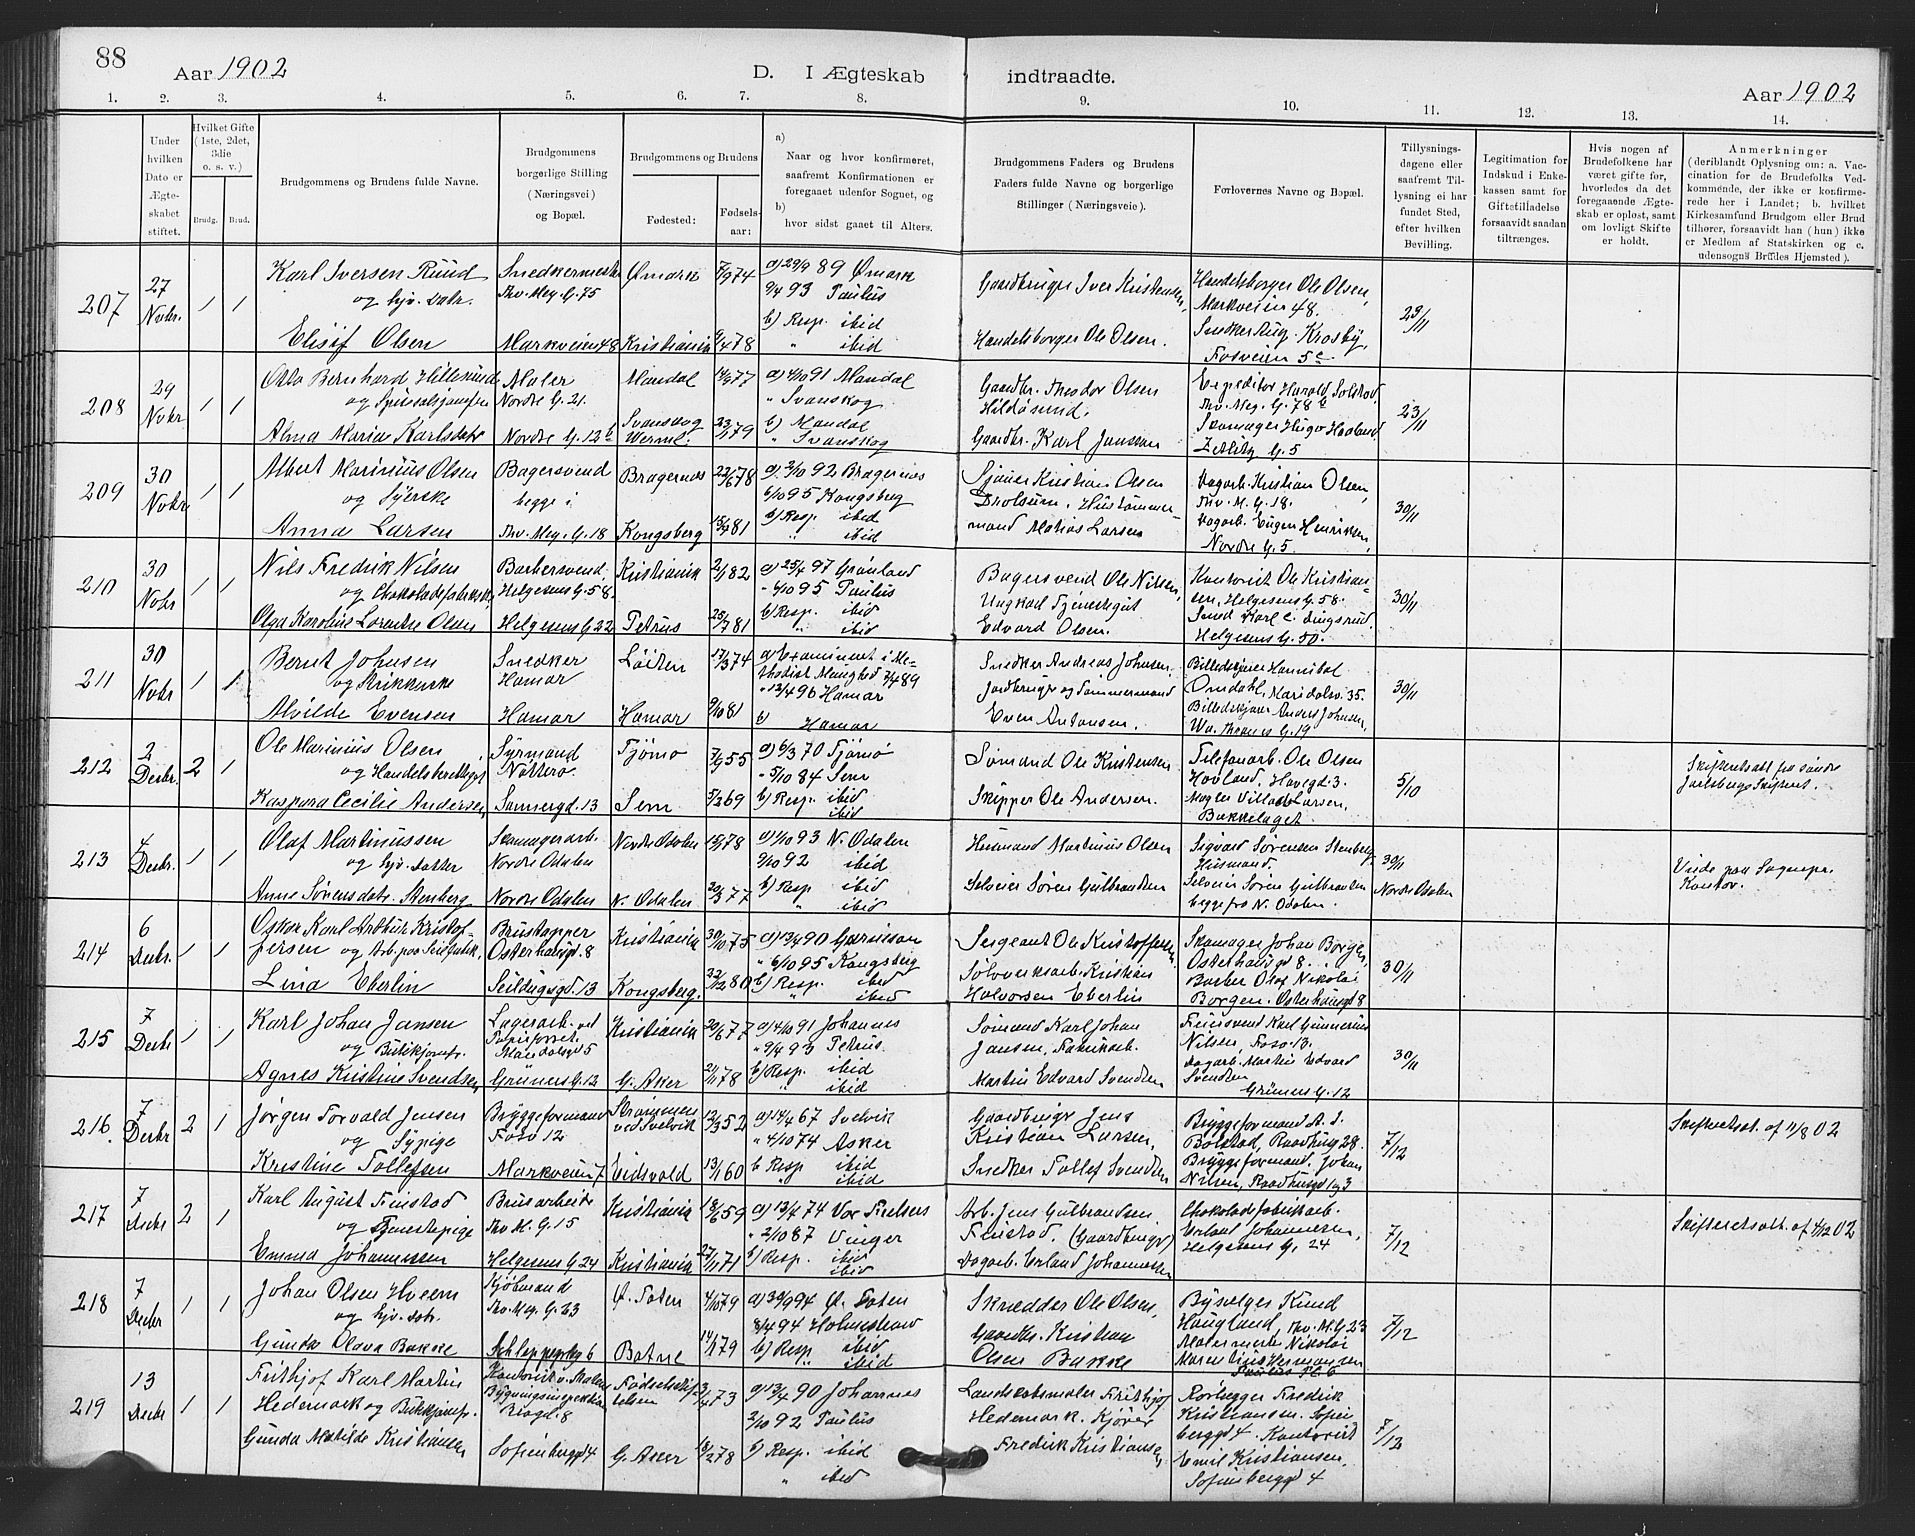 88
Aar 1902
D. I Ægteskab indtraadte.
Aar 1902
1. 2. 3. 4. 5. 6. 7. 8. 9. 10. 11. 12. 13. 14.
Under hvilken Dato er Ægteskabet stiftet.
Hvilket Gifte (1ste, 2det, 3die o. s. v.)
Brudg. Brud.
Brudgommens og Brudens fulde Navne.
Brudgommens borgerlige Stilling (Næringsvei) og Bopæl.
Brudgommens og Brudens
Fødested: Fødselsaar:
a) Naar og hvor konfirmeret, saafremt Konfirmationen er foregaaet udenfor Sognet, og
b) hvor sidst gaaet til Alters.
Brudgommens Faders og Brudens Faders fulde Navne og borgerlige Stillinger (Næringsveie).
Forlovernes Navne og Bopæl.
Tillysningsdagene eller saafremt Tillysning ei har fundet Sted, efter hvilken Bevilling.
Legitimation for Indskud i Enkekassen samt for Giftetilladelse forsaavidt saadan tiltrænges.
Hvis nogen af Brudefolkene har været gifte før, hvorledes da det foregaaende Ægteskab er opløst, samt om lovligt Skifte er holdt.
Anmerkninger (deriblandt Oplysning om: a. Vaccination for de Brudefolks Vedkommende, der ikke er konfirmerede her i Landet; b. hvilket Kirkesamfund Brudgom eller Brud tilhører, forsaavidt han (hun) ikke er Medlem af Statskirken og c. udensogns Bruds Hjemsted).
207
27 Novbr.
1 1
Karl Iversen Ruud
og hjv. Datr.
Elisif Olsen
Snedkermester
Thv. Mey. G. 75
Markveien 48
Ømark
Kristiania
7/9 74
9/4 78
a) 29/9 89 Ømark
9/4 93 Paulus
b) Resp. ibid
" ibid
Gaardbruger Iver Kristensen,
Handelsborger Ole Olsen.
Handelsborger Ole Olsen,
Markveien 48.
Snedker Aug. Krosby,
Fosveien 5c
23/11
208
29 Novbr
1 1
Otto Bernhard Hillesund
Alma Maria Karlsdatr
Maler
Nordre G. 21.
Nordre G. 12b
Mandal
Svanskog
Werml.
14/9 77
23/1 79
a) 4/10 91 Mandal
" Svanskog
b) Mandal
" Svanskog
Gaardbr. Theodor Olsen
Hildøsund.
Gaardbr. Karl Jansson
Expeditør Harald Solstad,
Thv. Mey. G. 78b
Skomager Hugo Hadlund
Zetlitz G. 5
23/11
209
30 Novbr
1 1
Albert Marinius Olsen
og Syerske
Anna Larsen
Bagersvend
begge i
Thv. Mey. G. 18
Bragernes
Kongsberg
22/6 78
15/9 81
a) 2/10 92 Bragernes
6/10 95 Kongsberg
b) Resp. ibid
" ibid
Kristian Olsen
Mathias Larsen
Dagarb. Kristian Olsen,
Thv. M. G. 18.
Dagarb. Eugen Henriksen,
Nordre G. 5.
30/11
210
30 Novbr
1 1
Nils Fredrik Nilsen
og Chokoladefabriksk.
Olga Karoline Lorentze Olsen
Barbersvend.
Helgesens G. 58.
Helgesens G. 22
Kristiania
Petrus
2/1 82
25/7 81
a) 25/4 97 Grønland
" 6/10 95 Paulus
b) Resp. ibid
" ibid
Bagersvend Ole Nilsen,
Ungkarl Tjenestegut
Edvard Olsen.
Kontorist Ole Kristiansen,
Helgesens G. 58.
Karl C. Lingsrud
Helgesens G. 50.
30/11
211
30 Novbr
1 1
Bernt Johnsen
og Strikkerske
Alvilde Evensen
Snedker
Hamar
Hamar
Løiten
Hamar
17/3 74
9/10 81
a) Examineret i Methodist Menighed 7/4 89
" 13/4 96 Hamar
b) Hamar
Snedker Andreas Johnsen,
Jordbruger og Tømmermand
Even Antonsen.
Billedskjærer Hannibal
Omdahl, Maridalsv. 35.
Billedskjærer Anders Johnsen,
Wa. Thranes G. 19
30/11
212
2 Decbr.
2 1
Ole Marinius Olsen
Kaspara Cecilie Andersen
Styrmand
Nøtterø.
Sannergd. 13
Tjømø
Sem
7/9 55
5/2 69
a) 6/3 70 Tjømø
" 5/10 84 Sem
b) Resp. ibid
ibid
Sømand Ole Kristensen
Skipper Ole Andersen.
Telefonarb. Ole Olsen
Hovland, Havegd. 3.
Mægler Villads Larsen,
Bækkelaget.
5/10
Skifteretsatt. fra søndre
Jarlsberg Skifteret.
213
4 Decbr.
1 1
Olaf Martinussen
og hjv. datter
Anne Sørensdatr. Stenberg
Skomagerarb.
Nordre Odalen
Nordre Odalen
Nordre Odalen
N. Odalen
15/1 78
20/3 77
a) 1/10 93 N. Odalen
9/10 92 ibid
b) Resp. ibid
" ibid
Husmand Martinus Olsen
Selveier Søren Gulbrandsen
Sigvard Sørensen Stenberg
Husmand.
Selveier Søren Gulbrandsen
begge fra N. Odalen.
30/11
Nordre Odalen
Viede paa Sognepr.
Kontor.
214
6 Decbr.
1 1
Oskar Karl Arthur Kristoffersen
og Arb. paa Seilfabrik.
Lina Eberlin
Brustapper
Osterhausgd. 8
Seildugsgd. 13
Kristiania
Kongsberg.
30/10 75
a) 13/4 90 Garnison
" 6/10 95 Kongsberg
b) Resp. ibid
" ibid
Sergeant Ole Kristoffersen,
Sølvverksarb. Kristian
Halvorsen Eberlin
Skomager Johan Borgen,
Osterhausgd 8.
Barber Olaf Nikolai
Borgen. Osterhausgd 8
30/11
215
7 Decbr
1 1
Karl Johan Jansen
og Butikjomfr.
Agnes Kristine Svendsen
Lagerarb. ved
Maridalsgd 5
Grüners G. 12
Kristiania
G. Aker
20/6 77
2/11 78
a) 4/10 91 Johannes
" 9/4 93 Petrus.
b) Resp. ibid
" ibid
Sømand Karl Johan
Jansen, Fabrikarb.
Martin Edvard Svendsen
Karl Gunnerius
Nilsen, Fosv. 13.
Dagarb. Martin Edvard
Svendsen
Grüners G. 12
30/11
216.
7 Decbr
2 1
Jørgen Torvald Jensen
og Sypige
Kristine Tollefsen
Bryggeformand
Fosv 12
Markveien 7
Strømmen
ved Svelvik
Eidsvold
12/3 52
13/1 60
a) 14/4 67 Svelvik
" 4/10 74 Asker
b Resp ibid
" ibid
Gaardbruger Jens
Kristian Larsen,
Snedker Tollef Svendsen
Bryggeformand A. J.
Bolstad, Raadhusg 28.
Bryggeformand. Johan
Nilsen, Raadhusgd 23
7/12
Skifteretsatt. af 11/8 02
217
7 Decbr
2 1
Karl August Finstad
og Tjenestepige
Emma Johannessen
Brusarbeider
Thv M. G. 15
Helgesens G. 24
Kristiania
Kristiania
18/6 59
27/11 71
a) 13/4 74 Vor Frelsers
" 2/10 87 Vinger
b) Resp. ibid
ibid
Arb. Jens Gulbrandsen
Finstad, (Gaardbruger)
Dagarb. Erland Johannessen
Chokoladefabrikarb.
Erland Johannessen,
Helgesens G. 24
7/12
Skifteretsatt. af 4/12 02
218
7 Decbr
1 1
Johan Olsen Hveem
og hjv. datr.
Gunda Olava Bakke
Kjøbmand
Thv. Mey. G. 23
Schleppegrelsg 6
Ø. Toten
Botne
4/10 79
14/1 79
a) 30/9 94 Ø. Toten
8/4 94 Holmestrand
b) Resp ibid
" ibid
Skrædder Ole Olsen,
Gaardbr. Kristian
Olsen Bakke
Bysælger Knud
Haugland, Thv. M. G 23
Malermester Nikolai
7/12
219
13 Decbr
1 1
Frithjof Karl Martin
Hedemark og Butikjomfr.
Gunda Matilde Kristiansen
Sofienberggd 4
Fødselsstiftelsen
G. Aker
3/4 73
18/2 78
a) 13/4 90 Johannes
2/10 92 Paulus
b) Resp. ibid
" ibid
Landskabsmaler Frithjof
Hedemark. Kjører
Fredrik Kristiansen,
Rørlægger Fredrik
Kristiansen. Sofienberggd 4. Kontorist
Emil Kristiansen,
Sofienberggd 4
7/12